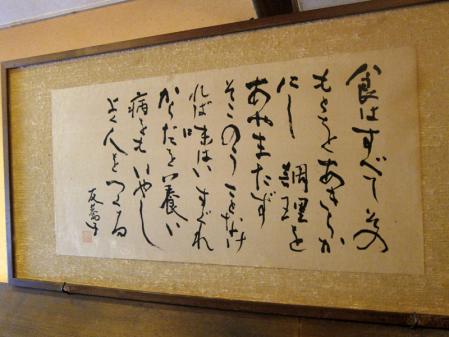 食はすべてその
もとをあきらか
にし 調理を
あやまたず
そこのうことなけ
れば味はいすぐれ
からだを養い
病をもいやし
よく人をつくる
友蕎子